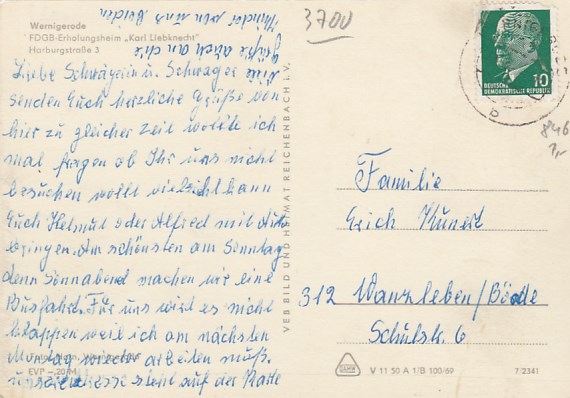 Wernigerode
FDGB-Erholungsheim „Karl Liebknecht"
Harburgstraße 3
Liebe Schwägerin u. Schwager Wir
senden Euch herzliche Grüße von
hier zu gleicher Zeit wollte ich
mal fragen ob Ihr uns nicht
besuchen wollt vielleicht kann
Euch Helmut oder Alfred mit Auto
bringen. Am schönsten am Sonntag
denn Sonnabend machen wir eine
Busfahrt. Für uns wird es nicht
klappen weil ich am nächsten
Montag wieder arbeiten muß.
unsere Adresse steht auf der Karte
Grüße auch an die
Kinder von uns beiden
EVP –,20 M
VEB BILD UND HEIMAT REICHENBACH I. V.
3700
10
DEUTSCHE
DEMOKRATISCHE REPUBLIK
846
1,-
Familie
Erich Kunert
312 Wanzleben/Börde
Schulstr. 6
V 11 50 A 1/B 100/69
7/2341